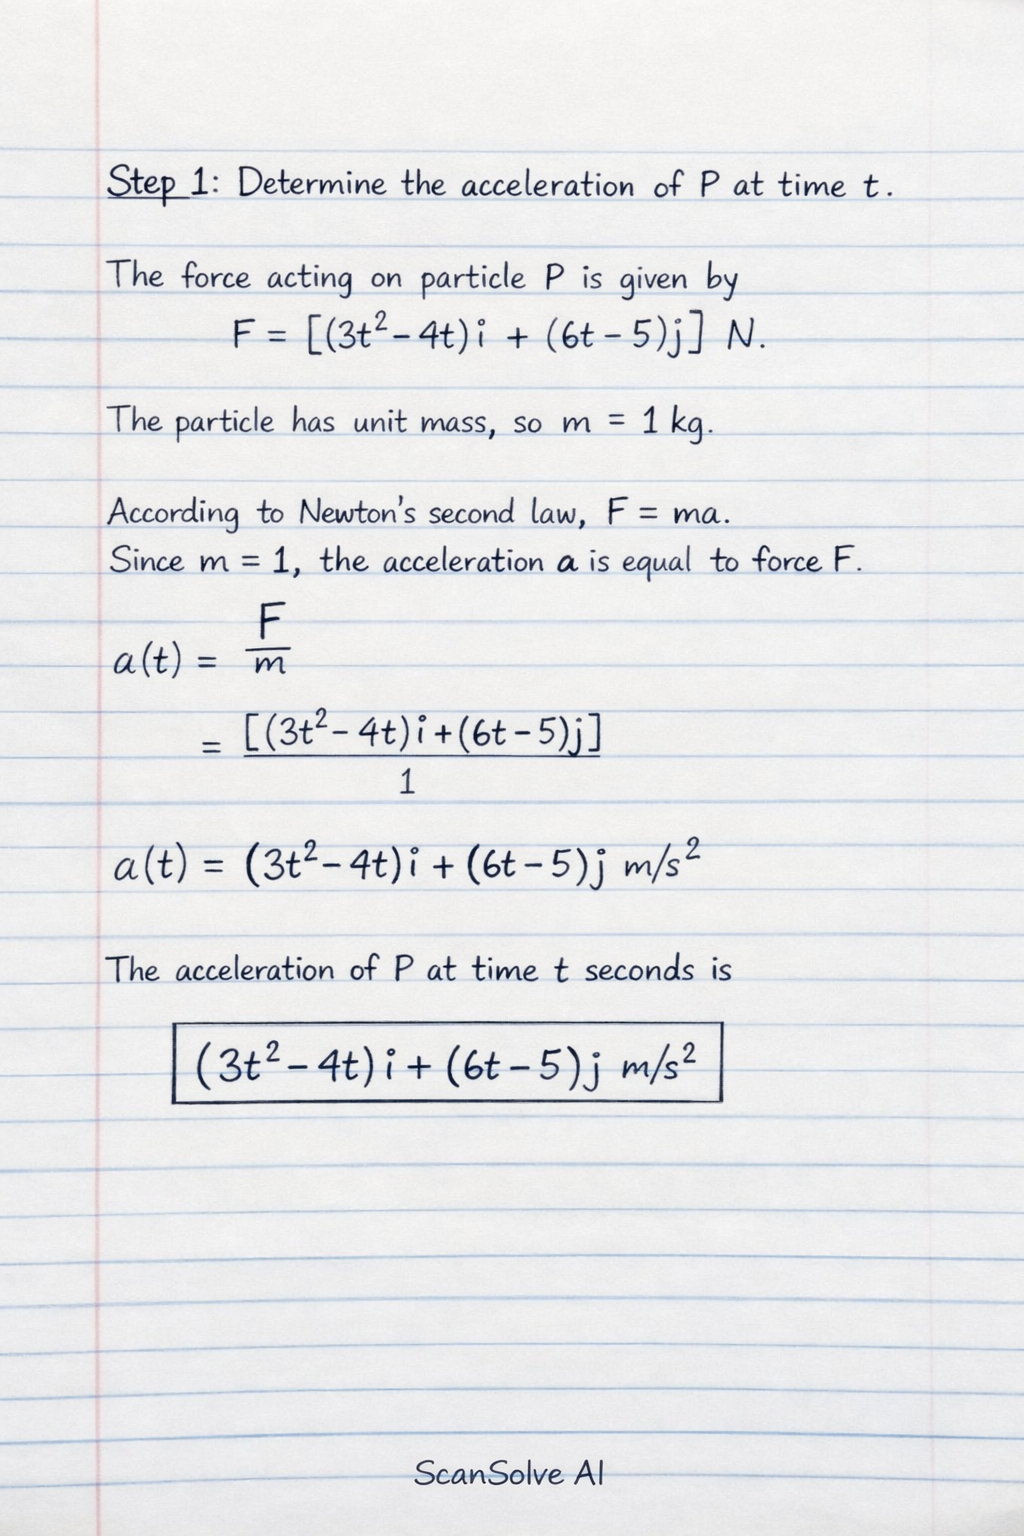 Step 1: Determine the acceleration of P at time t.
The force acting on particle P is given by
F = [(3t² − 4t)i + (6t − 5)j] N.
The particle has unit mass, so m = 1 kg.
According to Newton's second law, F = ma.
Since m = 1, the acceleration a is equal to force F.
a(t) = F/m
= [(3t² − 4t)i + (6t − 5)j]/1
a(t) = (3t² − 4t)i + (6t − 5)j m/s²
The acceleration of P at time t seconds is
(3t² − 4t)i + (6t − 5)j m/s²
ScanSolve AI